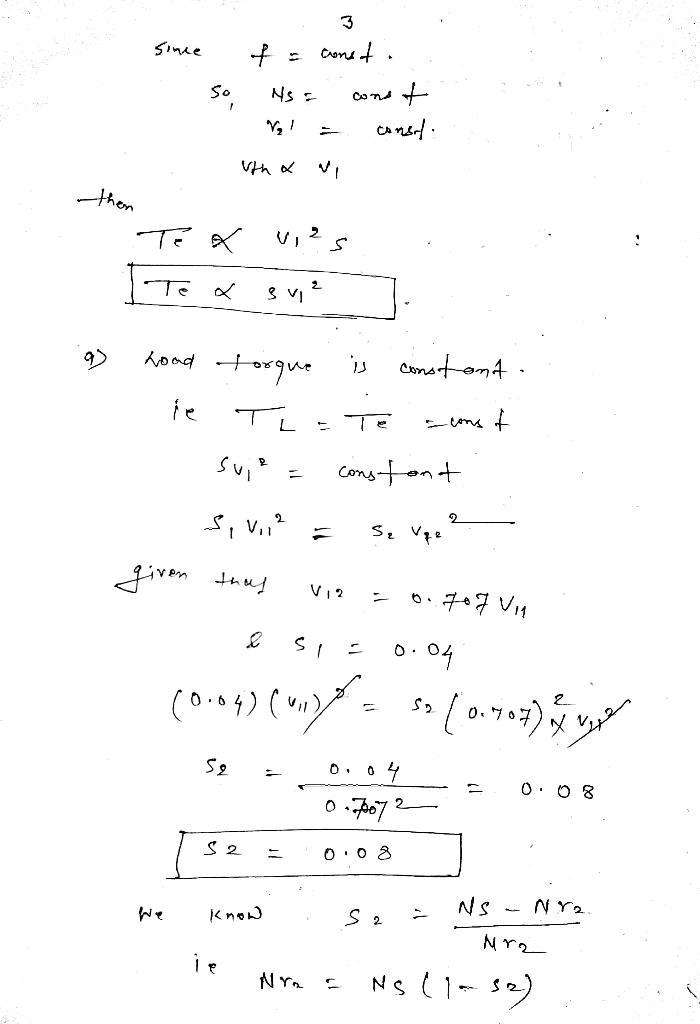 3
Since f = const.
So, Ns = const
r₂' = const.
Vth ∝ V₁
then
Te ∝ V₁² s
Te ∝ s V₁²
a) Load torque is constant.
ie T_L = Te = const
s V₁² = constant
S₁ V₁₁² = S₂ V₁₂²
given that V₁₂ = 0.707 V₁₁
& S₁ = 0.04
(0.04) (V₁₁)² = S₂ (0.707)² × V₁₁²
S₂ = 0.04 / 0.707² = 0.08
S₂ = 0.08
We know S₂ = Ns - Nr₂ / Nr₂
ie Nr₂ = Ns (1 - S₂)